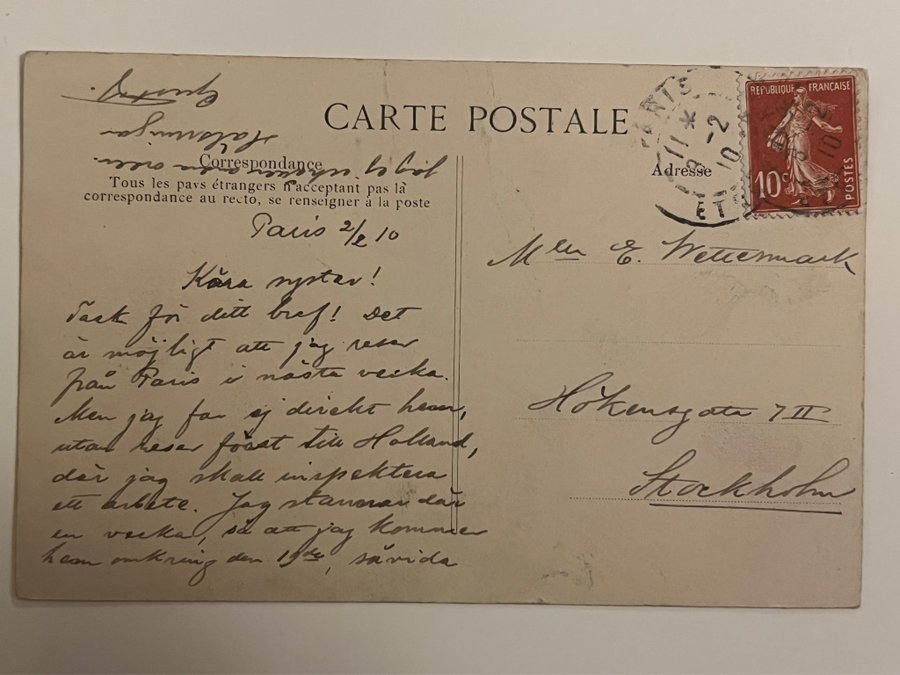 CARTE POSTALE
Correspondance
Tous les pays étrangers n'acceptant pas la
correspondance au recto, se renseigner à la poste
Adresse
RÉPUBLIQUE FRANÇAISE
10c
POSTES
PARIS
11 *
8 -2
10
Paris 2/2 10
Kära syster!
Tack för ditt bref! Det
är möjligt att jag reser
från Paris i nästa vecka.
Men jag far ej direkt hem,
utan reser först till Holland,
där jag skall inspektera
ett arbete. Jag stannar där
en vecka, så att jag kommer
hem omkring den 19de, såvida
jag ej
Hälsningar
Gustaf.
E. Wettermark
Hökensgata 7 II
Stockholm